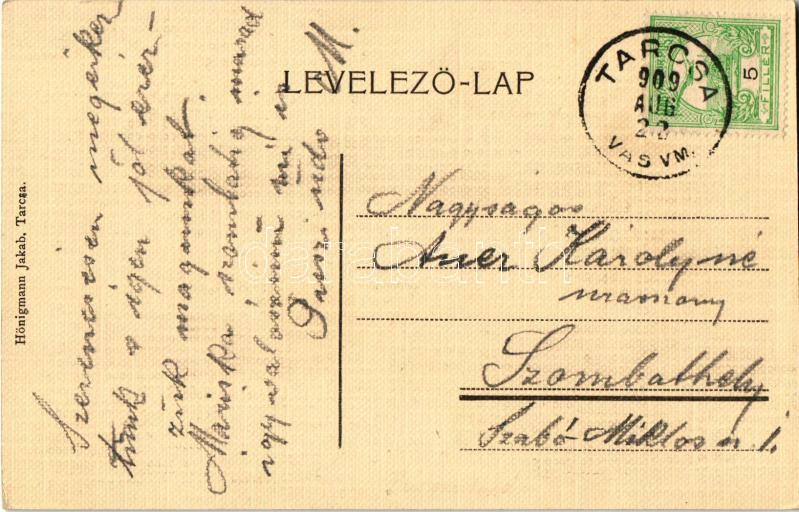 LEVELEZŐ-LAP
TARCSA
909
AUG
22
VAS VM.
5
FILLÉR
Hönigmann Jakab, Tarcsa.
Szerencsésen megérkez
tünk s igen jól érez-
zük magunkat.
Mariska szombatig marad
így valószínű mi is
Puszi üdv M.
Nagyságos
Auer Károlyné
uramony
Szombathely
Szabó Miklós u. 1.
darabanth